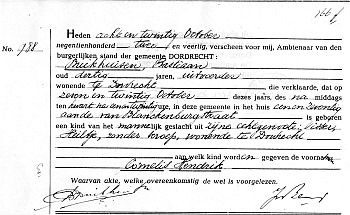 166
Heden acht en twintig October
negentienhonderd twee en veertig, verscheen voor mij, Ambtenaar van den
No. 788 burgerlijken stand der gemeente DORDRECHT:
Bastiaan
oud dertig jaren, uitvoerder
wonende te Dordrecht die verklaarde, dat op
zeven en twintig October dezes jaars, des na middags
ten kwart na ure, in deze gemeente in het huis een en zeventig
aan de van Blanckenburgstraat is geboren
een kind van het mannelijk geslacht uit zijne echtgenoote:
zonder beroep, wonende te Dordrecht
aan welk kind worden gegeven de voornamen
Cornelis Hendrik
Waarvan akte, welke overeenkomstig de wet is voorgelezen.